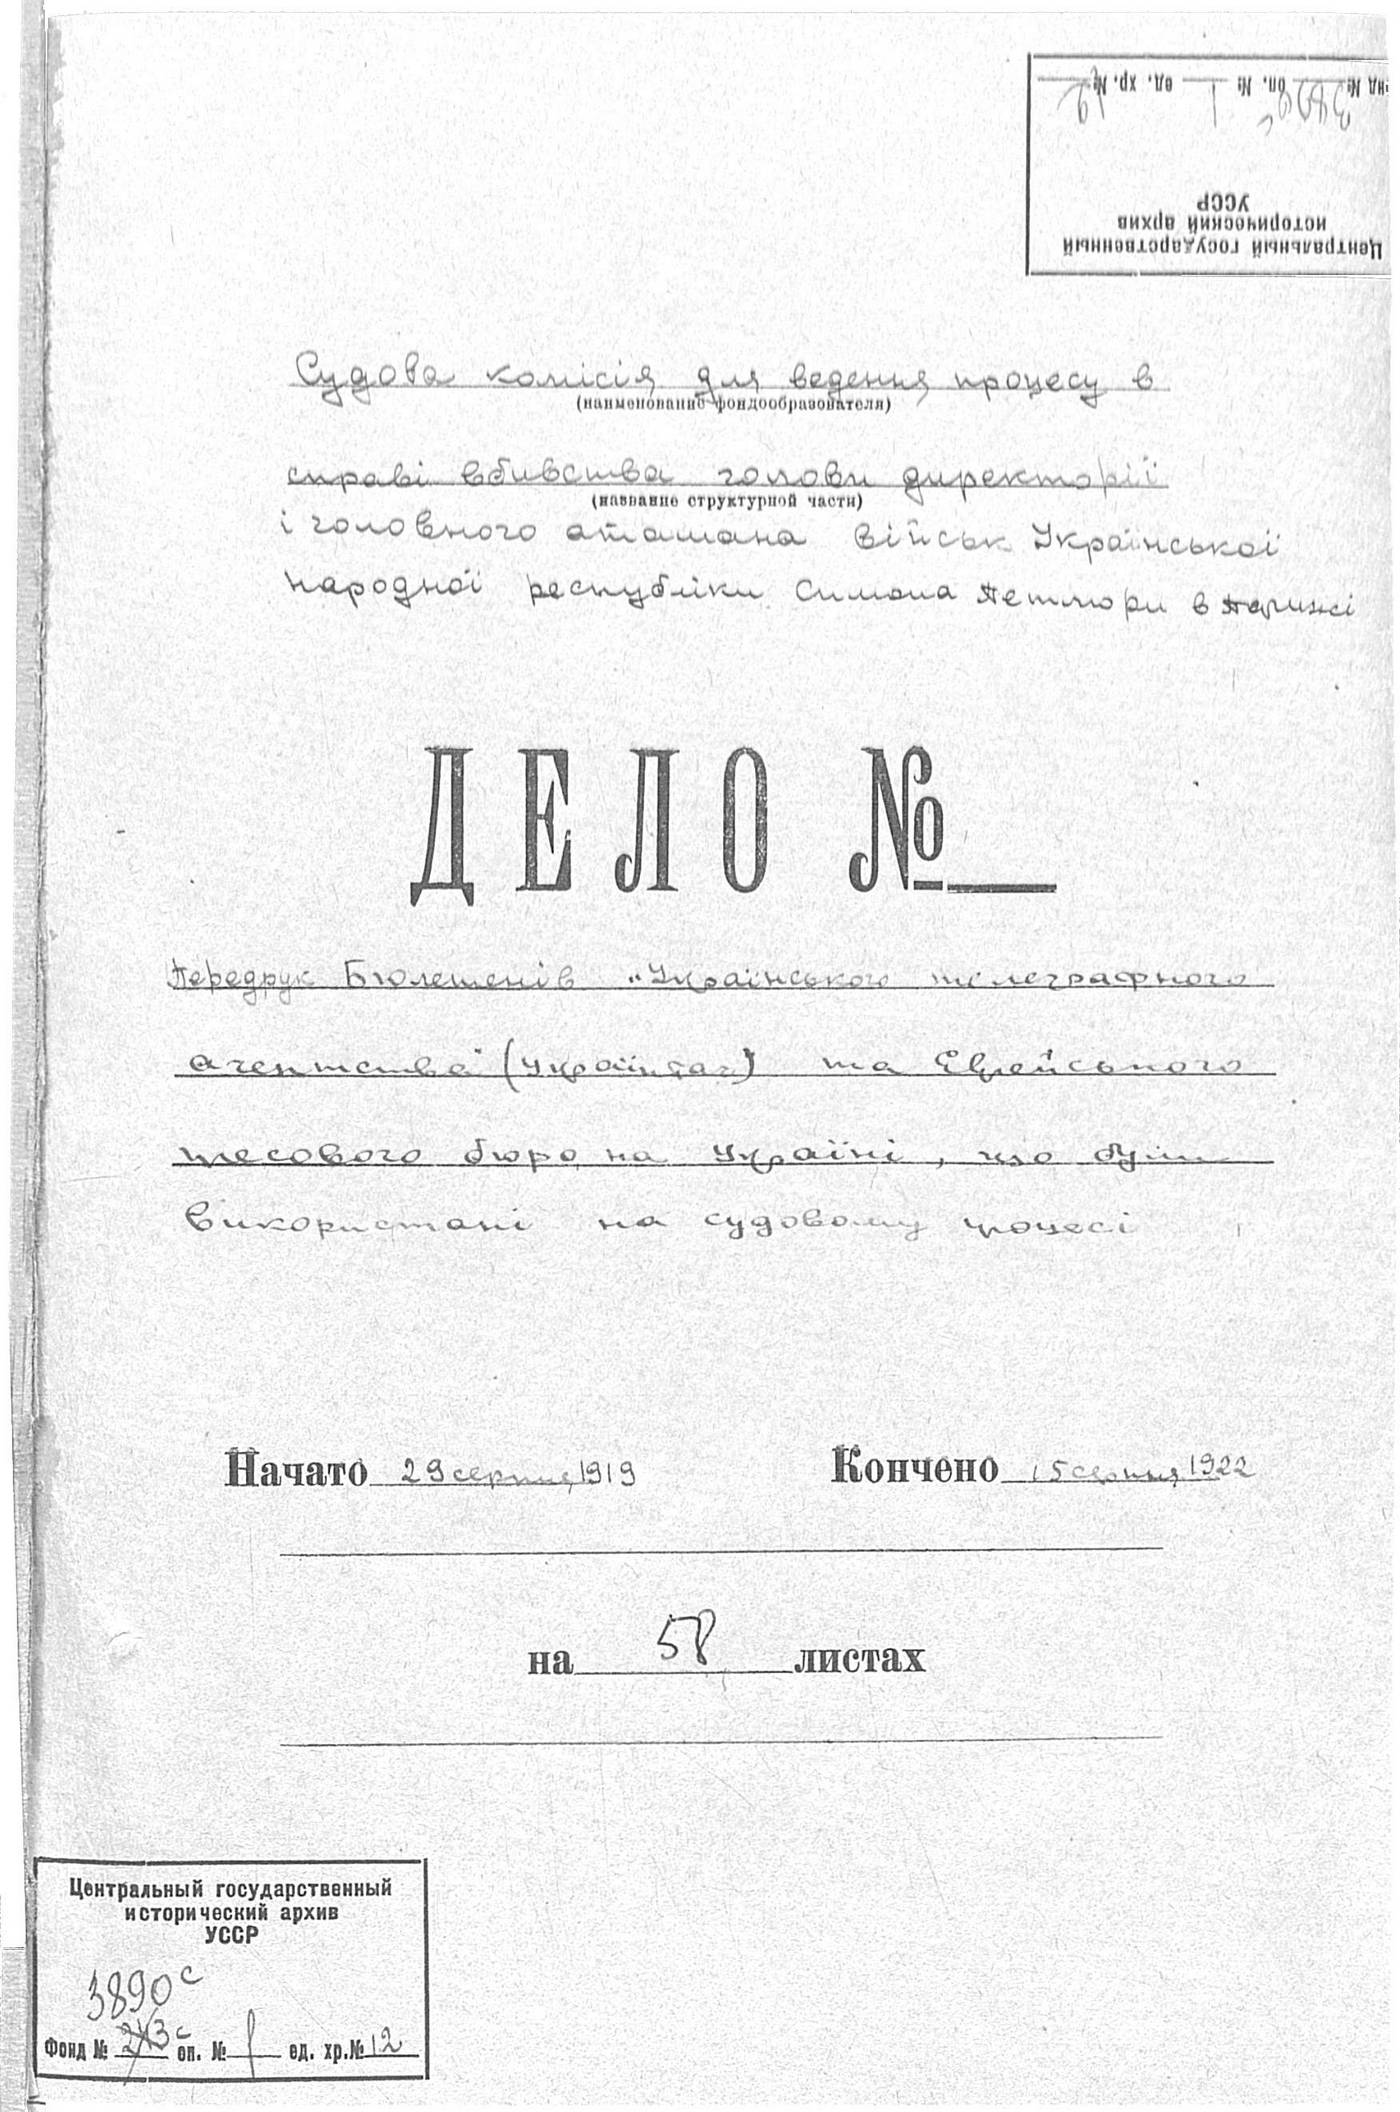 нд № 3890с оп. № 1 ед. хр. № 12
Центральный государственный
исторический архив
УССР
Судова комісія для ведення процесу в
(наименование фондообразователя)
справі вбивства голови директорії
(название структурной части)
і головного атамана військ Української
народної республіки Симона Петлюри в Парижі
ДЕЛО №
Передрук Бюлетенів "Українського телеграфного
агентства" (Українтаг) та Єврейського
пресового бюро на Україні, що були
використані на судовому процесі
Начато 29 серпня 1919 Кончено 15 серпня 1922
на 58 листах
Центральный государственный
исторический архив
УССР
3890 с
Фонд № 243 с оп. № 1 ед. хр. № 12